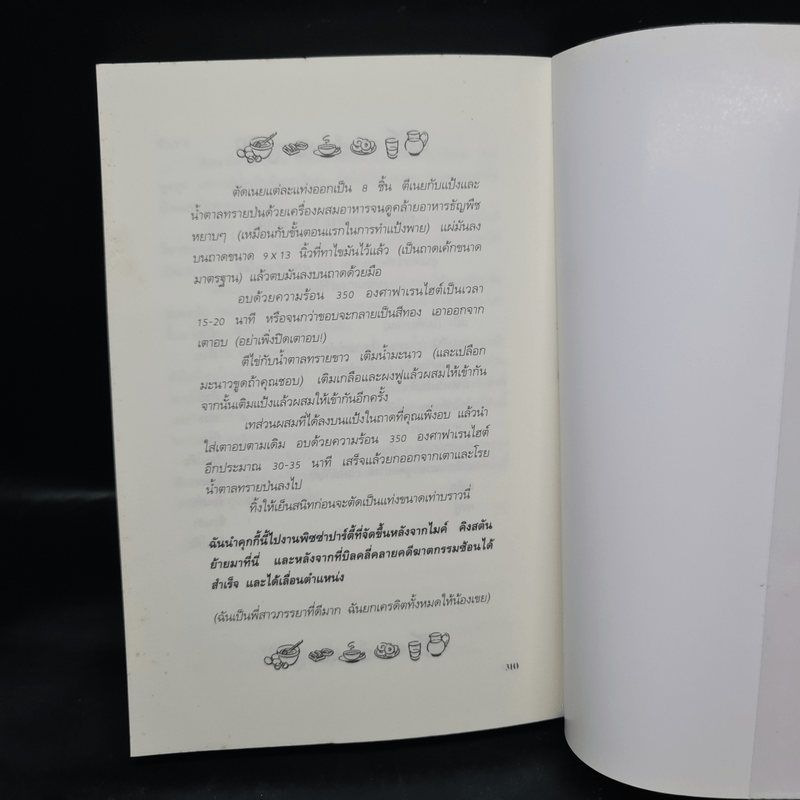 ตัดเนยแต่ละแท่งออกเป็น 8 ชิ้น ตีเนยกับแป้งและ
น้ำตาลทรายป่นด้วยเครื่องผสมอาหารจนดูคล้ายอาหารธัญพืช
หยาบๆ (เหมือนกับขั้นตอนแรกในการทำแป้งพาย) แผ่มันลง
บนถาดขนาด 9 x 13 นิ้วที่ทาไขมันไว้แล้ว (เป็นถาดเค้กขนาด
มาตรฐาน) แล้วตบมันลงบนถาดด้วยมือ
อบด้วยความร้อน 350 องศาฟาเรนไฮต์เป็นเวลา
15-20 นาที หรือจนกว่าขอบจะกลายเป็นสีทอง เอาออกจาก
เตาอบ (อย่าเพิ่งปิดเตาอบ!)
ตีไข่กับน้ำตาลทรายขาว เติมน้ำมะนาว (และเปลือก
มะนาวขูดถ้าคุณชอบ) เติมเกลือและผงฟูแล้วผสมให้เข้ากัน
จากนั้นเติมแป้งแล้วผสมให้เข้ากันอีกครั้ง
เทส่วนผสมที่ได้ลงบนแป้งในถาดที่คุณเพิ่งอบ แล้วนำ
ใส่เตาอบตามเดิม อบด้วยความร้อน 350 องศาฟาเรนไฮต์
อีกประมาณ 30-35 นาที เสร็จแล้วยกออกจากเตาและโรย
น้ำตาลทรายป่นลงไป
ทิ้งให้เย็นสนิทก่อนจะตัดเป็นแท่งขนาดเท่าบราวนี่
ฉันนำคุกกี้นี้ไปงานพิซซ่าปาร์ตี้ที่จัดขึ้นหลังจากไมค์ คิงสตัน
ย้ายมาที่นี่ และหลังจากที่บิลคลี่คลายคดีฆาตกรรมซ้อนได้
สำเร็จ และได้เลื่อนตำแหน่ง
(ฉันเป็นพี่สาวภรรยาที่ดีมาก ฉันยกเครดิตทั้งหมดให้น้องเขย)
310